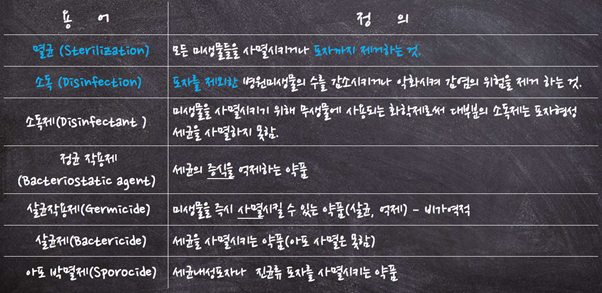 용 어 정 의
멸균 (Sterilization) 모든 미생물들을 사멸시키거나 포자까지 제거하는 것.
소독 (Disinfection) 포자를 제외한 병원미생물의 수를 감소시키거나 약화시켜 감염의 위험을 제거 하는 것.
소독제(Disinfectant ) 미생물을 사멸시키기 위해 무생물에 사용되는 화학제로써 대부분의 소독제는 포자형성
세균을 사멸하지 못함.
정균 작용제
(Bacteriostatic agent) 세균의 증식을 억제하는 약품
살균작용제(Germicide) 미생물을 즉시 사멸시킬 수 있는 약품(살균, 억제) - 비가역적
살균제(Bactericide) 세균을 사멸시키는 약품(아포 사멸은 못함)
아포 박멸제(Sporocide) 세균내성포자나 진균류 포자를 사멸시키는 약품